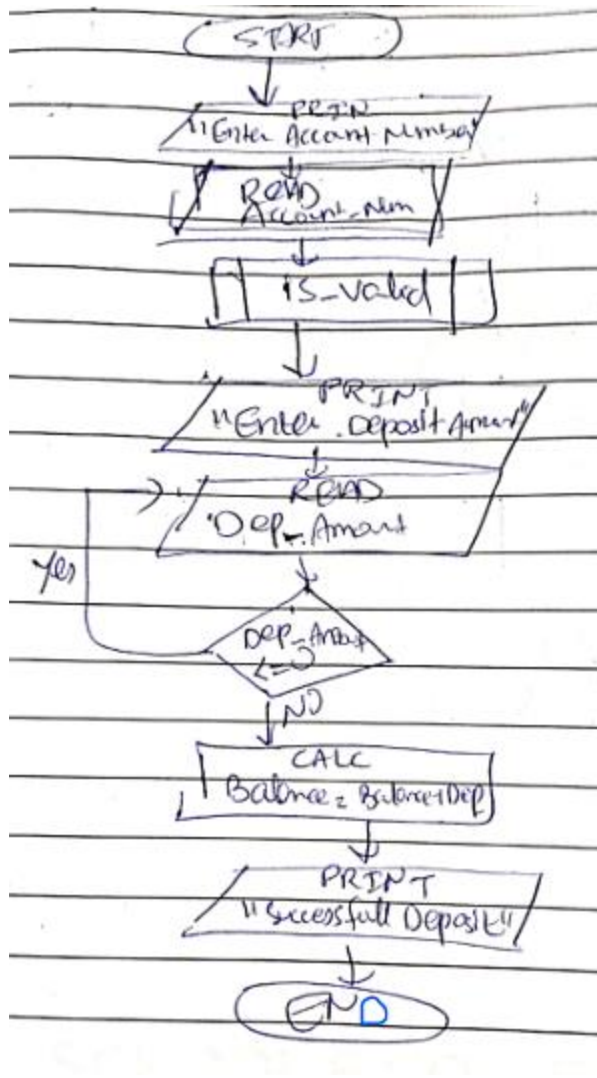 START
PRIN
"Enter Account Number"
READ
Account_Num
is_valid
PRINT
"Enter Deposit Amount"
READ
Dep_Amount
Yes
Dep_Amout
<=0
NO
CALC
Balance = Balance+Dep
PRINT
"Successfull Deposit"
END